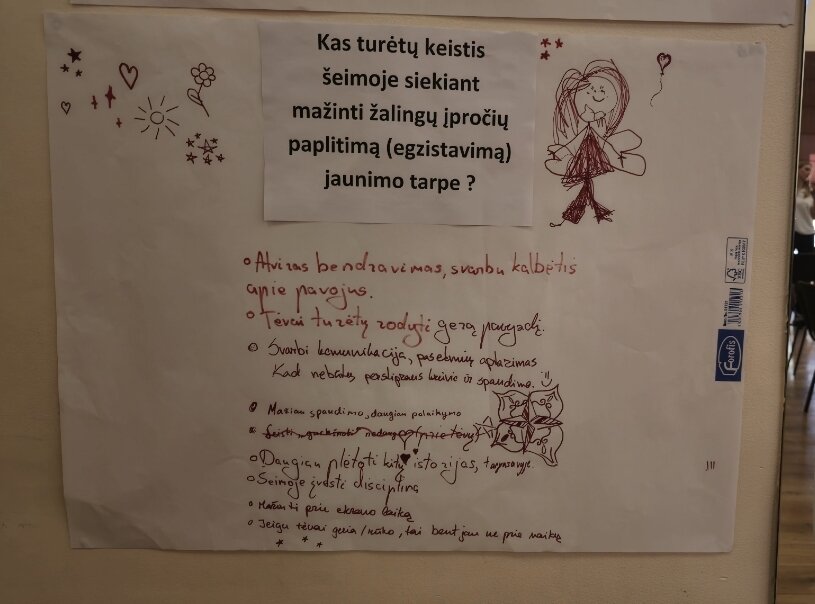 Kas turėtų keistis
šeimoje siekiant
mažinti žalingų įpročių
paplitimą (egzistavimą)
jaunimo tarpe ?
Atviras bendravimas, svarbu kalbėtis
apie pavojus.
Tėvai turėtų rodyti gerą pavyzdį.
Svarbi komunikacija, pasekmių aptarimas
Kad nebūtų
ir spaudimo. :)
Mažiau spaudimo, daugiau palaikymo
Daugiau plėtoti kitų istorijas,
Šeimoje įvesti discipliną
Mažinti prie ekrano laiką
Jeigu tėvai geria / rūko, tai bent jau ne prie vaikų
Forofis